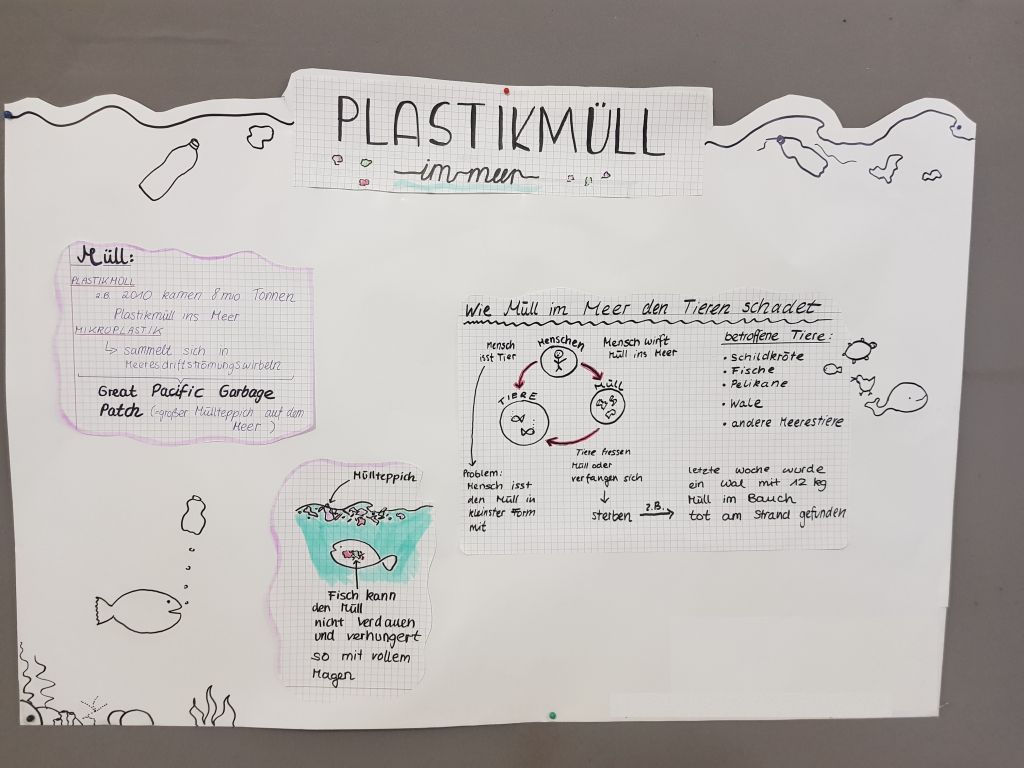 PLASTIKMÜLL
im meer
Müll:
PLASTIKMÜLL
z.B. 2010 kamen 8 mio Tonnen
Plastikmüll ins Meer
MIKROPLASTIK
↳ sammelt sich in
Meeresdriftströmungswirbeln
Great Pacific Garbage
Patch (=großer Müllteppich auf dem
Meer)
Müllteppich
Fisch kann
den Müll
nicht verdauen
und verhungert
so mit vollem
Magen
Wie Müll im Meer den Tieren schadet
Mensch
isst Tier
Menschen
Mensch wirft
Müll ins Meer
TIERE
Müll
Tiere fressen
Müll oder
verfangen sich
↓
sterben → z.B.
Problem:
Mensch isst
den Müll in
kleinster Form
mit
betroffene Tiere:
• Schildkröte
• Fische
• Pelikane
• Wale
• andere Meerestiere
letzte Woche wurde
ein Wal mit 12 kg
Müll im Bauch
tot am Strand gefunden